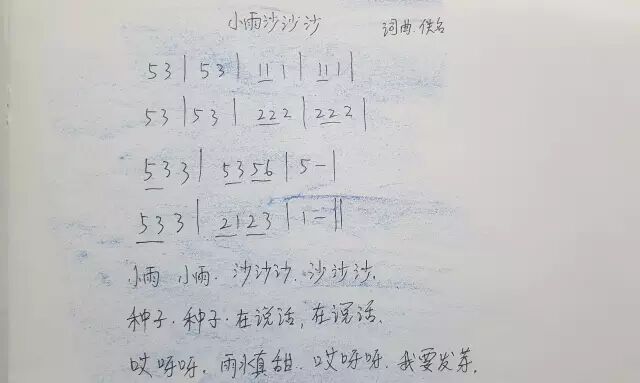 小雨沙沙沙
词曲.佚名
53|53|111|111|
53|53|222|222|
533|5356|5-|
533|2123|1-||
小雨 小雨.沙沙沙.沙沙沙.
种子.种子.在说话,在说话.
哎呀呀.雨水真甜.哎呀呀.我要发芽.